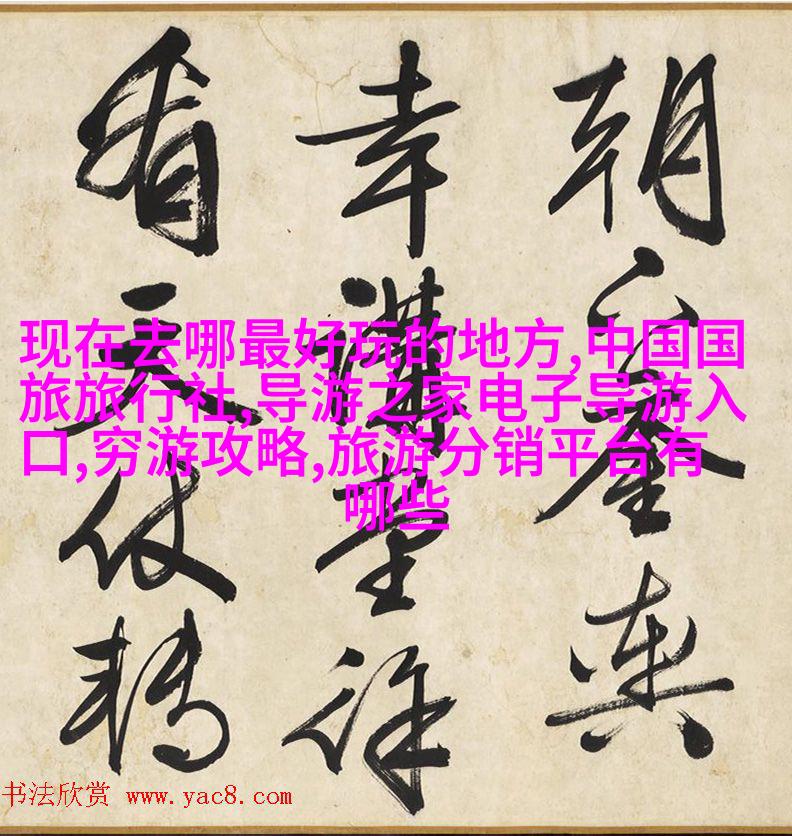 朝 輿
幸講堂徐
看天仗轉
现在去哪最好玩的地方,中国国
旅旅行社,导游之家电子导游入
口,穷游攻略,旅游分销平台有
哪些
书法欣赏 www.yac8.com